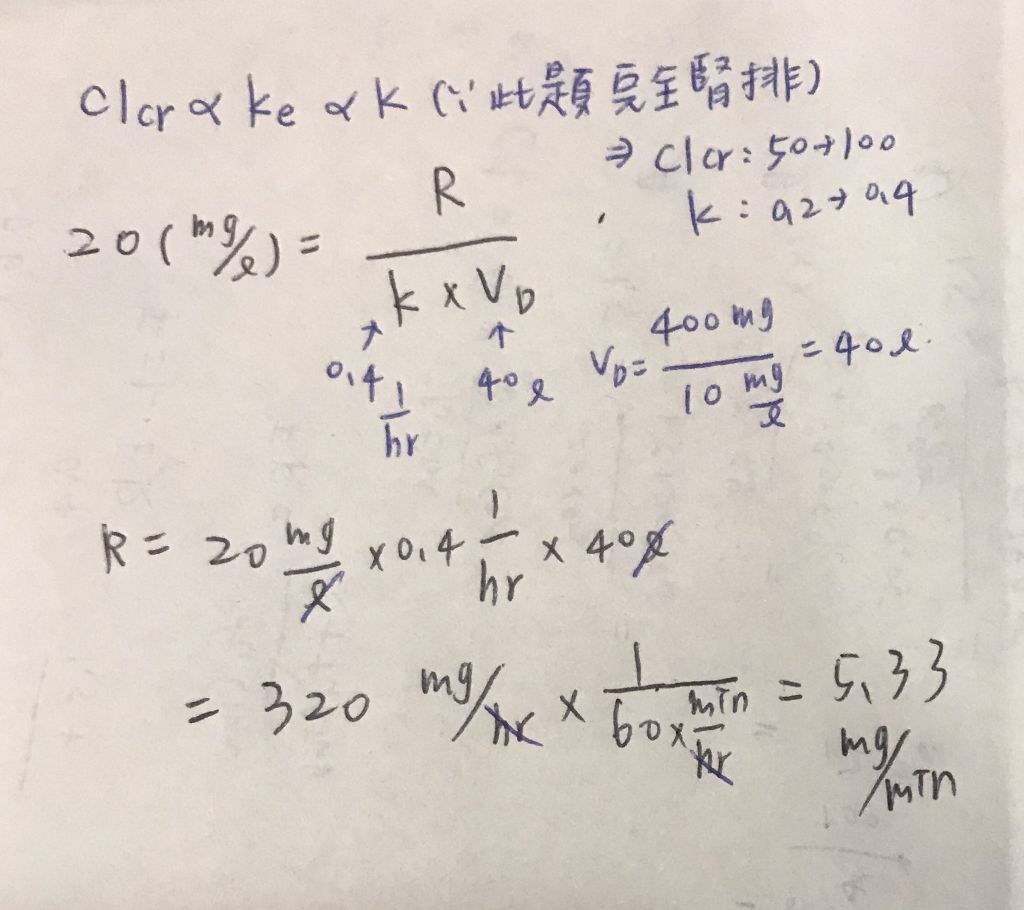 Clcr ∝ ke ∝ k (∵此題完全腎排)
⇒ Clcr: 50→100
k: 0.2→0.4
20 (mg/ℓ) = R / (k × VD)
0.4 1/hr
40 ℓ
VD = 400 mg / 10 mg/ℓ = 40 ℓ.
R = 20 mg/ℓ × 0.4 1/hr × 40 ℓ
= 320 mg/hr × 1 / (60 × min/hr) = 5.33 mg/min